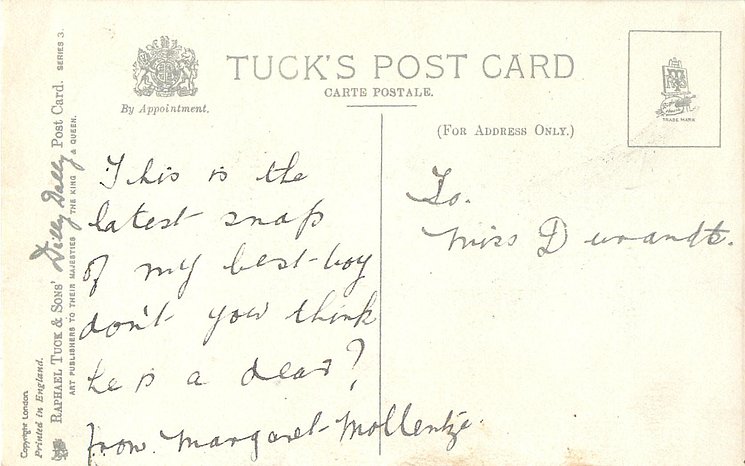 TUCK'S POST CARD
CARTE POSTALE.
By Appointment.
(For Address Only.)
TRADE MARK
This is the
latest snap
of my best-boy
don't you think
he is a dear?
from Margaret Mollentze.
To.
Miss Durandt.
Copyright London.
Printed in England.
RAPHAEL TUCK & SONS' Dilly Dally Post Card. SERIES 3.
ART PUBLISHERS TO THEIR MAJESTIES THE KING & QUEEN.